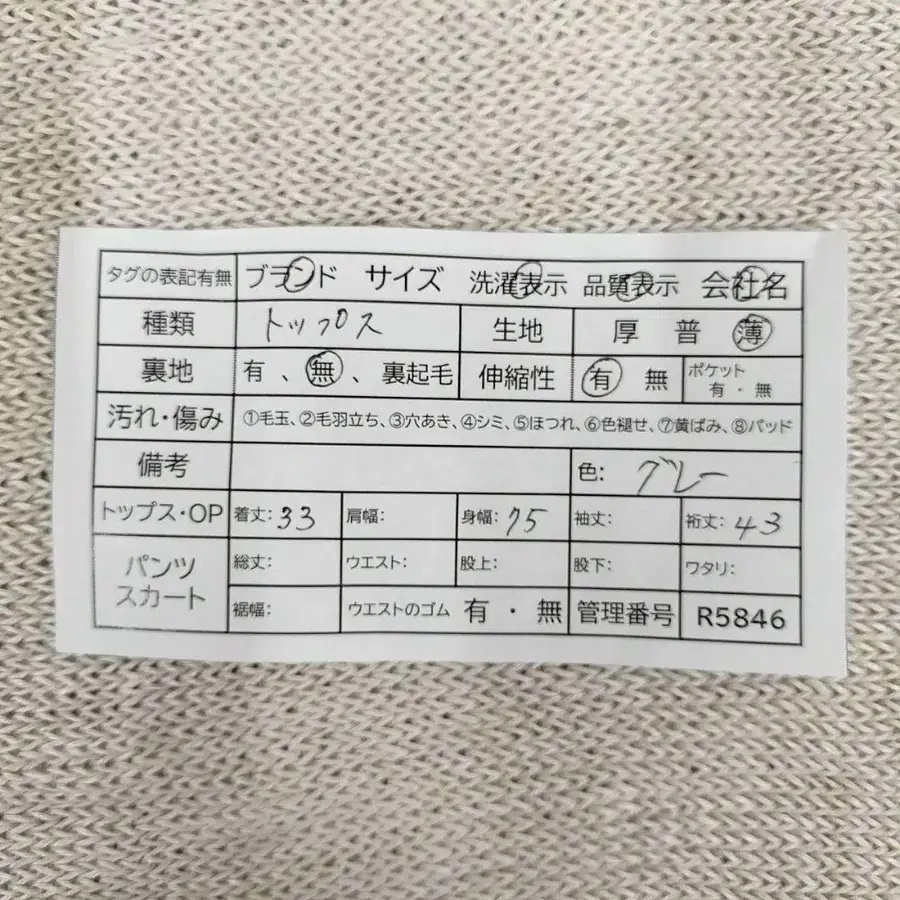 タグの表記有無 ブランド サイズ 洗濯表示 品質表示 会社名
種類 トップス 生地 厚 普 薄
裏地 有 、 無 、 裏起毛 伸縮性 有 無 ポケット 有 ・ 無
汚れ・傷み ①毛玉、②毛羽立ち、③穴あき、④シミ、⑤ほつれ、⑥色褪せ、⑦黄ばみ、⑧パッド
備考 色: グレー
トップス・OP 着丈: 33 肩幅: 身幅: 75 袖丈: 裄丈: 43
パンツ スカート 総丈: ウエスト: 股上: 股下: ワタリ:
裾幅: ウエストのゴム 有 ・ 無 管理番号 R5846